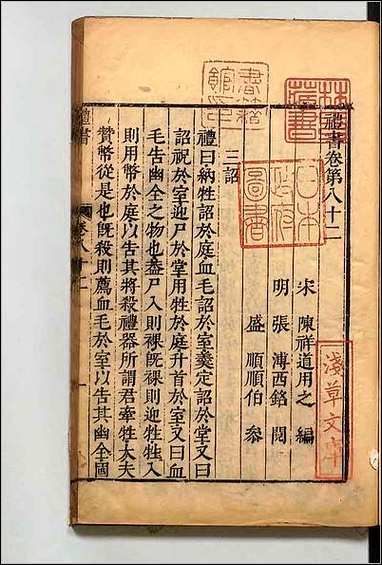 禮書卷第八十二
宋 陳祥道用之 編
明 張溥西銘 閱
盛順順伯 參
三詔
禮曰納牲詔於庭血毛詔於室羹定詔於堂又曰
詔祝於室迎尸於堂用牲於庭升首於室又曰血
毛告幽全之物也蓋尸入則祼旣祼則迎牲牲入
則用幣於庭以告其將殺禮器所謂君牽牲大夫
贊幣從是也旣殺則薦血毛於室以告其幽全國
禮書
卷八十二
林氏藏書
日本政府圖書
淺草文庫
書籍館印